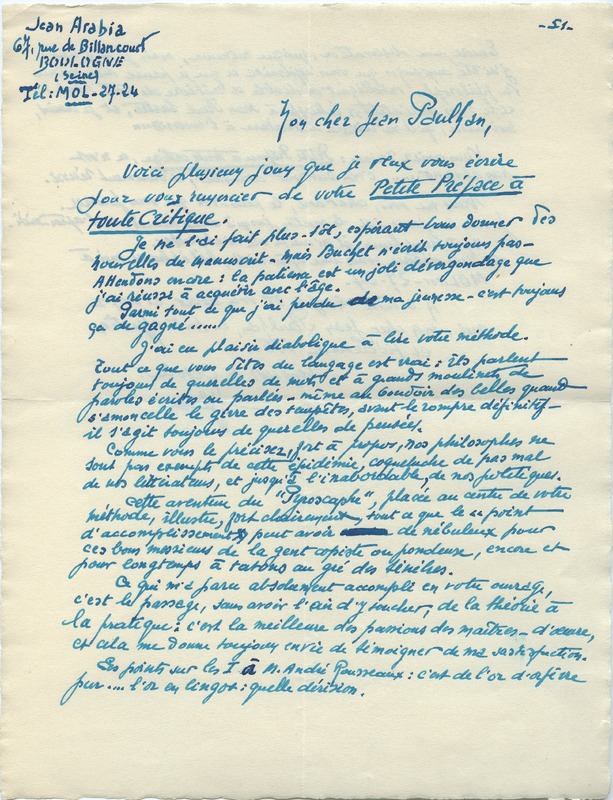 Jean Arabia
67, rue de Billancourt
BOULOGNE
(Seine)
Tél : MOL-27-24
-51-
Mon cher Jean Paulhan,
Voici plusieurs jours que je veux vous écrire
pour vous remercier de votre Petite Préface à
toute Critique.
Je ne l'ai fait plus-tôt, espérant vous donner des
nouvelles du manuscrit - mais Buchet n'écrit toujours pas -
Attendons encore : la patience est un joli dévergondage que
j'ai réussi à acquérir avec l'âge.
Parmi tout ce que j'ai perdu de ma jeunesse - c'est toujours
ça de gagné .....
J'ai eu plaisir diabolique à lire votre méthode.
Tout ce que vous dîtes du langage est vrai : ils parlent
toujours de querelles de mots, et à grands moulinets de
paroles écrites ou parlées - même au boudoir des belles quand
s'amoncelle le givre des tempêtes, avant le rompre définitif -
il s'agit toujours de querelles de pensées.
Comme vous le précisez, fort à propos, nos philosophes ne
sont pas exempts de cette épidémie, coqueluche de pas mal
de nos littérateurs, et jusqu'à l'inabordable, de nos politiques.
Cette aventure du "Pyroscaphe", placée au centre de votre
méthode, illustre, fort clairement, tout ce que le "point
d'accomplissement" peut avoir de nébuleux pour
ces bons messieurs de la gent copiste ou pondeuse, encore et
pour longtemps à tatons au gré des séniles.
Ce qui m'a paru absolument accompli en votre ouvrage,
c'est le passage, sans avoir l'air d'y toucher, de la théorie à
la pratique : c'est la meilleure des passions des maîtres-d'œuvre,
et cela me donne toujours envie de témoigner de ma satisfaction.
Les points sur les I à M. André Rousseaux : c'est de l'or d'orfèvre
pur .... l'or en lingots : quelle dérision.